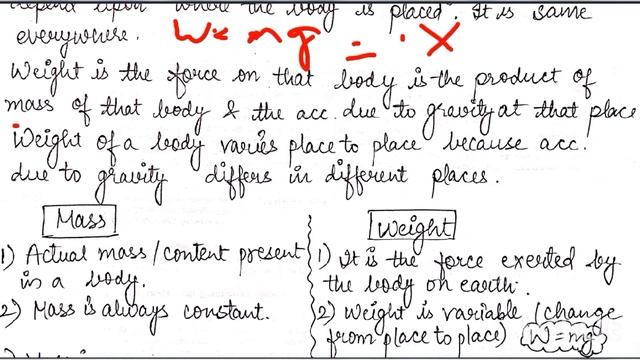 depend upon where the body is placed. It is same
everywhere.
Weight is the force on that body is the product of
mass of that body & the acc. due to gravity at that place
Weight of a body varies place to place because acc.
due to gravity differs in different places.
Mass
1) Actual mass/content present
in a body.
2) Mass is always constant.
Weight
1) It is the force exerted by
the body on earth.
2) Weight is variable (change
from place to place) W = mg